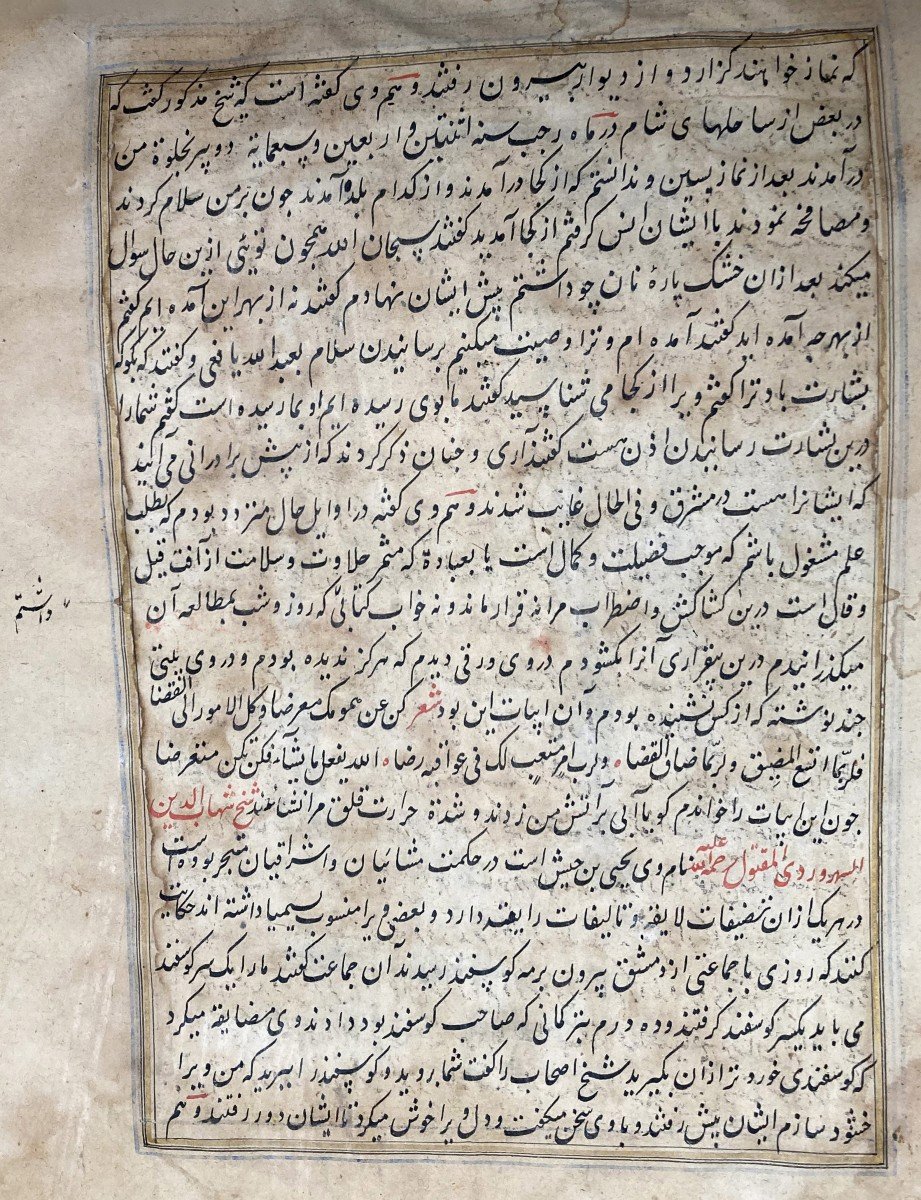 که نماز خواهند گزارد و از دیوار بیرون رفتند و هم وی گفته است که شیخ مذکور گفت که
در بعض از ساحلهای شام در ماه رجب سنه اثنتین و اربعین و سبعمایة دو پیر بخلوة من
درآمدند بعد از نماز پسین و ندانستم که از کجا درآمدند و از کدام بلد آمدند جون بر من سلام کردند
و مصافحه نمودند با ایشان انس گرفتم از کجا آمدید گفتند سبحان الله همجون توئی ازین حال سوال
میکند بعد ازان خشک پارۀ نان جو داشتم پیش ایشان نهادم گفتند نه از بهر این آمده ایم گفتم
از بهر جه آمده اید گفتند آمده ام و ترا وصیت میکنیم برسانیدن سلام بعبد الله یافعی و گفتند که بگو که
بشارت باد ترا گفتم ویرا از کجا می شناسید گفتند ما بوی رسیده ایم او بما رسیده است گفتم شمارا
درین بشارت رسانیدن اذن هست گفتند آری و جنان ذکر کردند که از پیش برادرانی می آیند
که ایشانرا هست در مشرق و فی الحال غایب شدند و هم وی گفته در اوایل حال متردد بودم که بطلب
علم مشغول باشم که موجب فضیلت و کمال است یا بعبادة که مثمر حلاوت و سلامت از آفت قیل
و قال است درین کشاکش و اضطراب مرا نه قرار ماند و نه خواب کتابی که روز و شب بمطالعه آن
داشتم
میگذرانیدم درین بیقراری آنرا بگشودم در وی ورقی دیدم که هرگز ندیده بودم و در وی بیتی
جند نوشته که از کس نشنیده بودم و آن ابیات این بود شعر کن عن همومک معرضا وکل الامور الی القضا
فلربما اتسع المضیق ولربما ضاق الفضا ه ولرب امر متعب لک فی عواقبه رضا ه الله یفعل ما یشآء فلا تکن متعرضا
جون این ابیات را خواندم گویا آبی بر آتش من زدند و شدة حرارت قلق مرا نشاندند شیخ شهاب الدین
السهروردی المقتول رحمة الله علیه نام وی یحیی بن حبش است در حکمت مشائیان و اشراقیان متبحر بوده است
در هر یک ازان تصنیفات لایقه و تالیفات رایقه دارد و بعضی ویرا منسوب بسیمیا داشته اند حکایت
کنند که روزی با جماعتی از دمشق بیرون برمه گوسفند رسیدند آن جماعت گفتند مارا یک سر گوسفند
می باید یکسر گوسفند گرفتند و ده درم بترکمانی که صاحب گوسفند بود دادند وی مضایقه میکرد
که گوسفندی خورد تر ازان بگیرید شیخ اصحاب را گفت شما روید و گوسپند را ببرید که من ویرا
خشنود سازم ایشان پیش رفتند و با وی سخن میگفت و دل ویرا خوش میکرد تا ایشان دور رفتند و هم